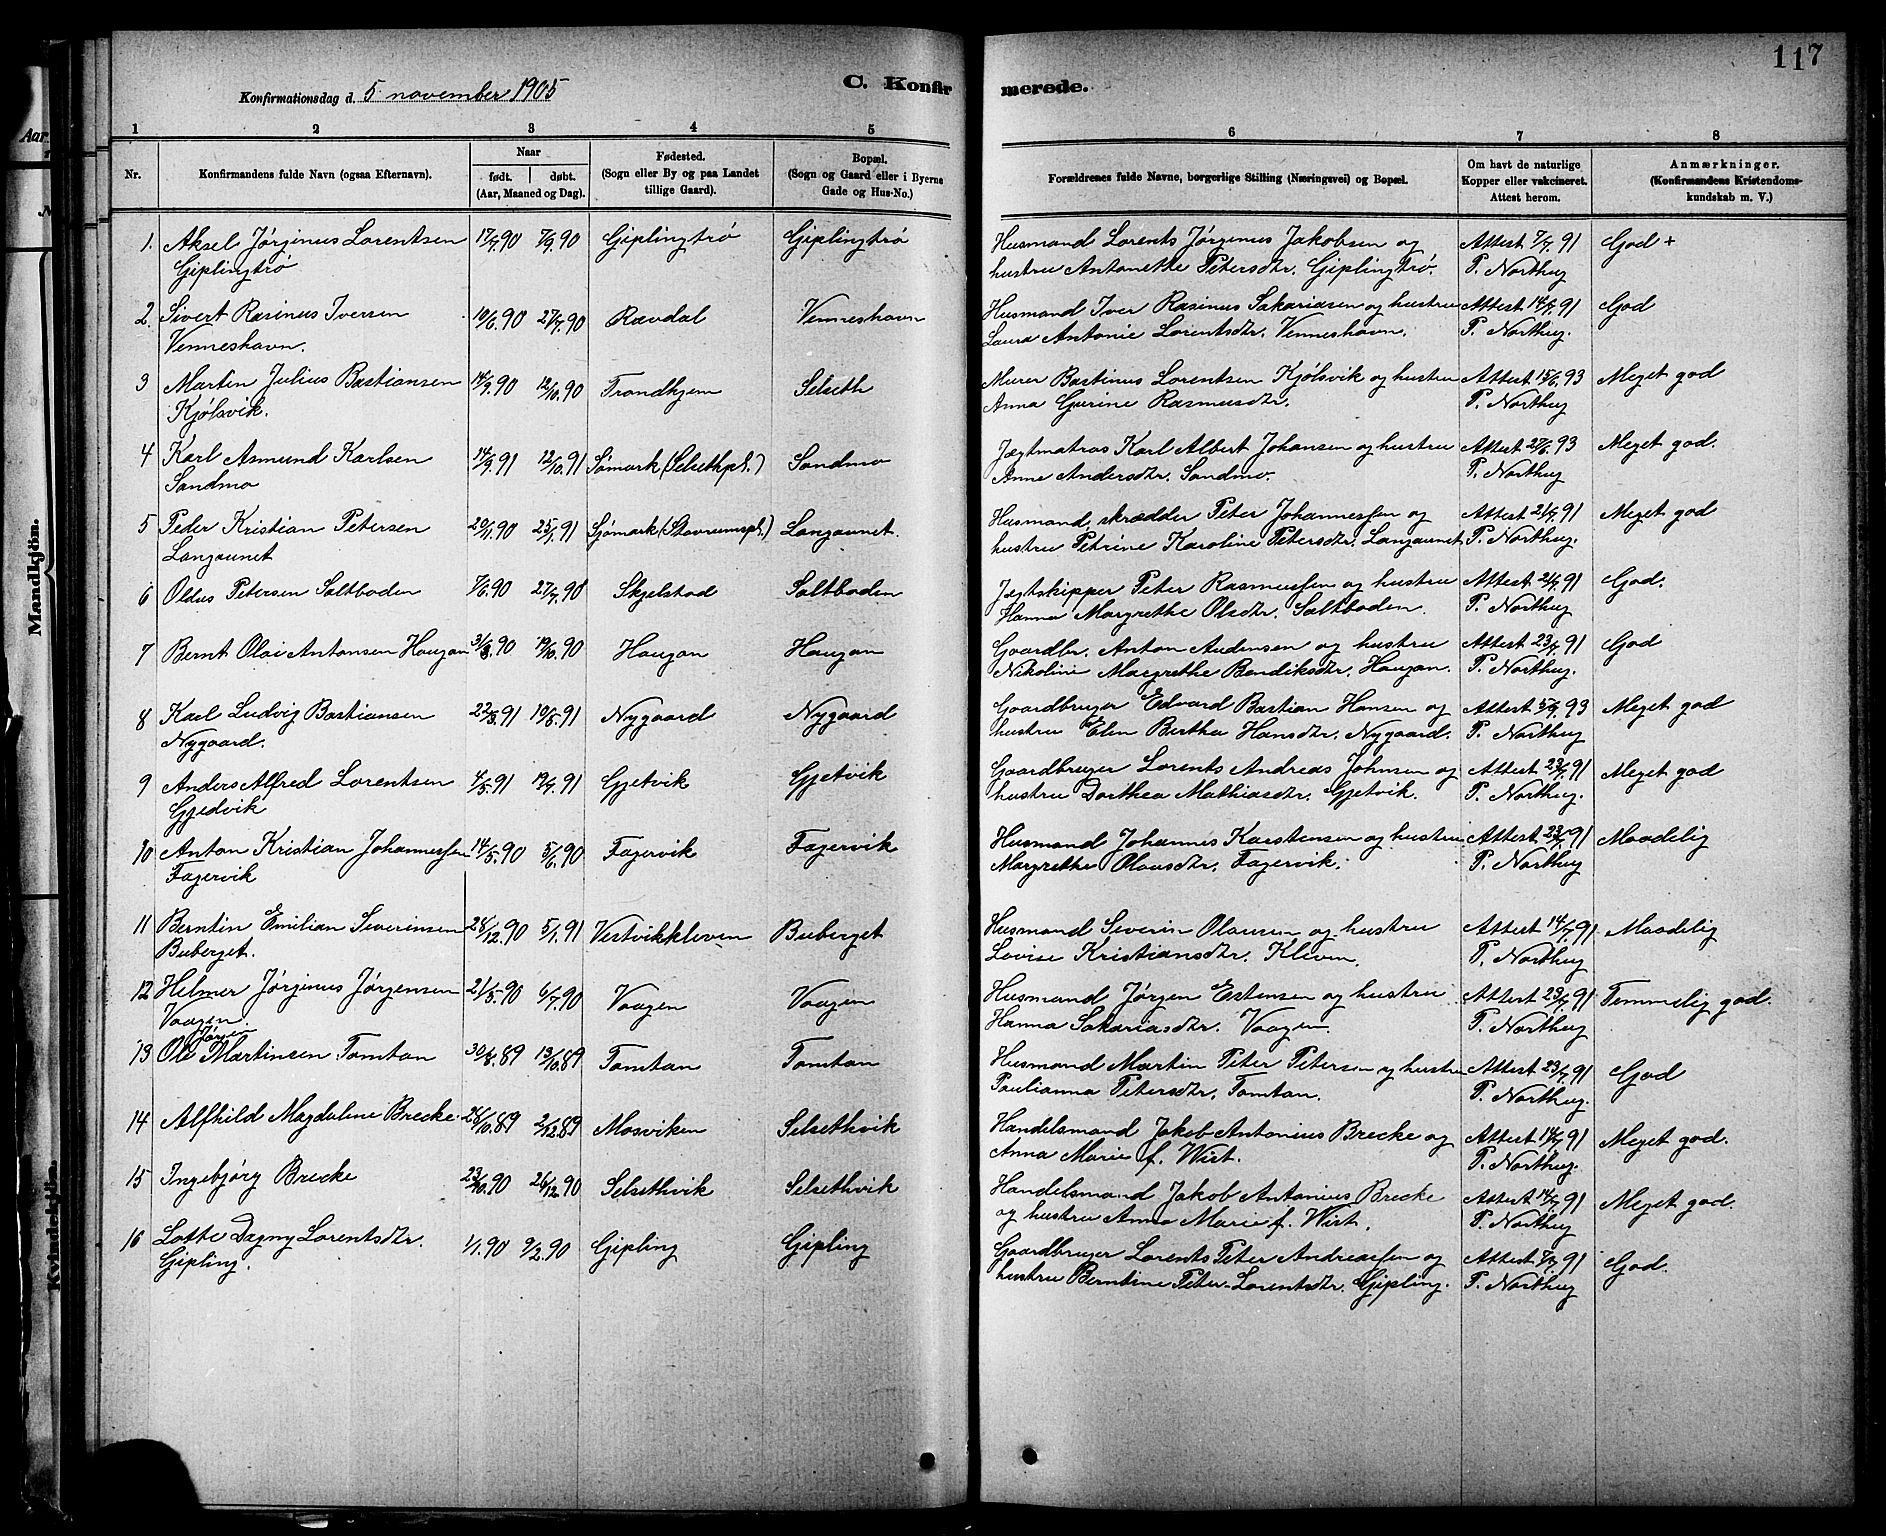 117
Konfirmationsdag d. 5 november 1905
C. Konfirmerede.
1 2 3 4 5 6 7 8
Nr. Konfirmandens fulde Navn (ogsaa Efternavn). Naar født. døbt. (Aar, Maaned og Dag). Fødested. (Sogn eller By og paa Landet tillige Gaard). Bopæl. (Sogn og Gaard eller i Byerne Gade og Hus-No.) Forældrenes fulde Navne, borgerlige Stilling (Næringsvei) og Bopæl. Om havt de naturlige Kopper eller vakcineret. Attest herom. Anmærkninger. (Konfirmandens Kristendomskundskab m. V.)
1. Aksel Jørginus Lorentsen 17/7 90 7/9 90 Giplingtrø Giplingtrø Husmand Lorents Jørginus Jakobsen og Attest 7/7 91 God +
Giplingtrø hustru Antonette Petersdtr. Giplingtrø. P. Northug
2. Sivert Rasinus Iversen 10/6 90 27/7 90 Ravdal Venneshavn Husmand Iver Rasinus Sakariasen og hustru Attest 14/7 91 God
Venneshavn. Laura Antonie Lorentsdtr. Venneshavn. P. Northug.
3 Martin Julius Bastiansen 14/9 90 12/10 90 Trondhjem Selseth Murer Bastinus Lorentsen Kjølsvik og hustru Attest 15/6 93 Meget god
Kjølsvik. Anna Gurine Rasmusdtr. P. Northug
4 Karl Asmund Karlsen 14/9 91 12/10 91 Sømark (Selsethpl.) Sandmo Jægtmatros Karl Albert Johansen og hustru Attest 27/6 93 Meget god.
Sandmo Anne Andersdtr. Sandmo. P. Northug
5 Peder Kristian Petersen 20/11 90 25/1 91 Sjømark (Stavrumspl.) Langaunet. Husmand, skrædder Peter Johannessen og Attest 21/7 91 Meget god
Langaunet hustru Petrine Karoline Petersdtr. Langaunet P. Northug.
6 Oldus Petersen Saltboden 7/6 90 27/7 90 Skjelstad Saltboden Jægtskipper Peter Rasmussen og hustru Attest 21/7 91 God.
Hanna Margrethe Olsdtr. Saltboden. P. Northug
7 Bernt Olai Antonsen Haugan 31/8 90 19/10 90 Haugan Haugan Gaardbr. Anton Audensen og hustru Attest 23/7 91 God
Nikoline Margrethe Bendiksdtr. Haugan. P. Northug.
8 Karl Ludvig Bastiansen 22/3 91 10/5 91 Nygaard Nygaard Gaardbruger Edvard Bastian Hansen og Attest 5/9 93 Meget god
Nygaard. hustru Elen Berthe Hansdtr. Nygaard. P. Northug
9 Anders Alfred Lorentsen 4/5 91 19/7 91 Gjetvik Gjetvik Gaardbruger Lorents Andreas Johnsen og Attest 23/7 91 Meget god
Gjedvik hustru Dorthea Mathiasdtr. Gjetvik. P. Northug.
10 Anton Kristian Johannessen 14/5 90 5/6 90 Fagervik Fagervik Husmand Johannes Karstensen og hustru Attest 23/7 91 Maadelig
Fagervik Margrethe Olausdtr. Fagervik. P. Northug
11 Berntin Emilian Severinsen 28/12 90 5/1 91 Vestvikkleven Buberget Husmand Severin Olausen og hustru Attest 14/7 91 Maadelig
Buberget. Lovise Kristiansdtr. Kleven. P. Northug
12 Helmer Jørginus Jørgensen 21/5 90 6/7 90 Vaagen Vaagen Husmand Jørgen Estensen og hustru Attest 23/7 91 Temmelig god.
Vaagen. Hanna Sakariasdtr. Vaagen. P. Northug
Jørgen
13 Ole Martinsen Tomtan 30/8 89 13/10 89 Tomtan Tomtan Husmand Martin Peter Petersen og hustru Attest 23/7 91 God
Paulianna Petersdtr. Tomtan. P. Northug.
14 Alfhild Magdalene Brecke 28/10 89 2/12 89 Mosviken Selsethvik Handelsmand Jakob Antonius Brecke og Attest 14/7 91 Meget god.
Anna Marie f. Wist. P. Northug.
15 Ingebjørg Brecke 23/10 90 26/12 90 Selsethvik Selsethvik Handelsmand Jakob Antonius Brecke Attest 14/7 91 Meget god.
og hustru Anna Marie f. Wist. P. Northug
16 Lotte Dagny Lorentsdtr. 1/1 90 9/2 90 Gipling Gipling Gaardbruger Lorents Peter Andreassen og Attest 7/7 91 God.
Gipling. hustru Berntine Peter-Lorentsdtr. Gipling. P. Northug
Aar.
Mandkjön.
Kvindekjön.